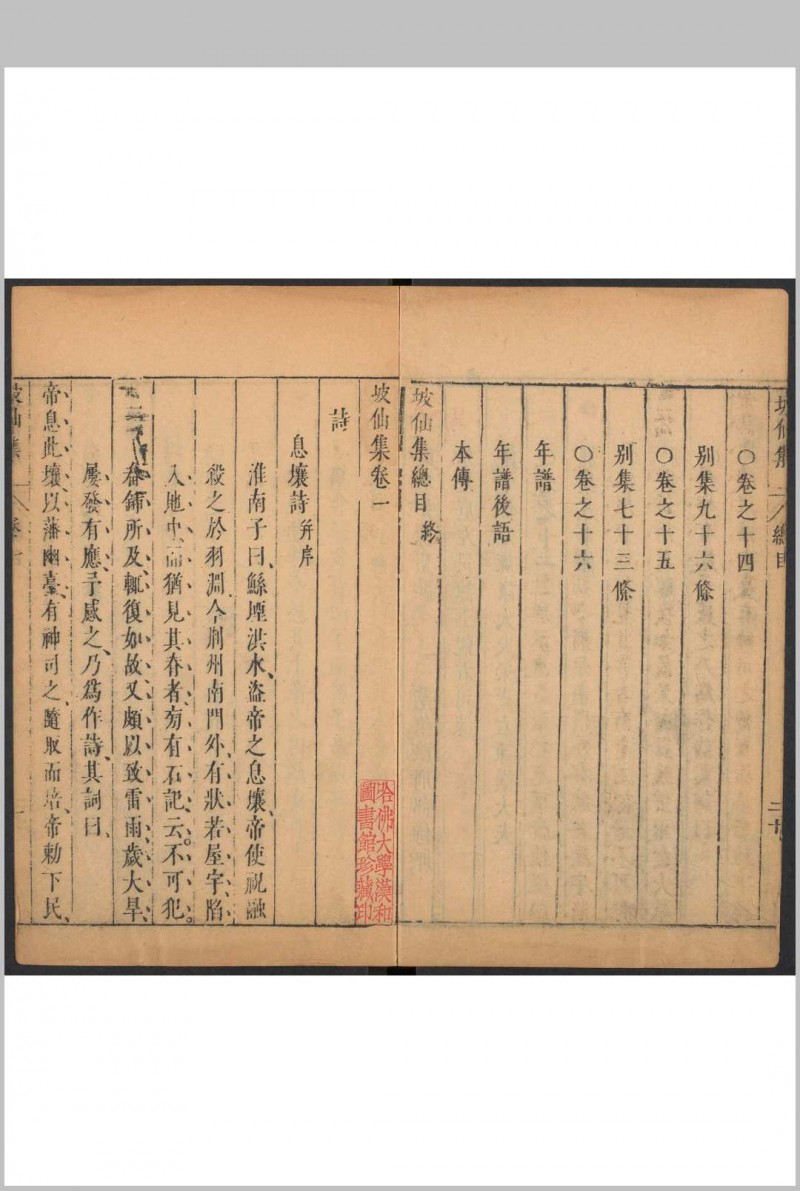 坡仙集 總目 二十
〇卷之十四
別集九十六條
〇卷之十五
別集七十三條
〇卷之十六
年譜
年譜後語
本傳
坡仙集總目 終
坡仙集卷一
哈佛大學漢和
圖書館珍藏印
詩
息壤詩 并序
淮南子曰、鯀堙洪水、盜帝之息壤、帝使祝融
殺之於羽淵、今荆州南門外有狀若屋宇、陷
入地中、而猶見其脊者、旁有石記云。不可犯。
畚鍤所及、輒復如故、又頗以致雷雨、歲大旱、
屢發有應、予感之、乃爲作詩、其詞曰、
帝息此壤、以藩幽臺、有神司之、隨取而培、帝勅下民、
坡仙集 卷一 一